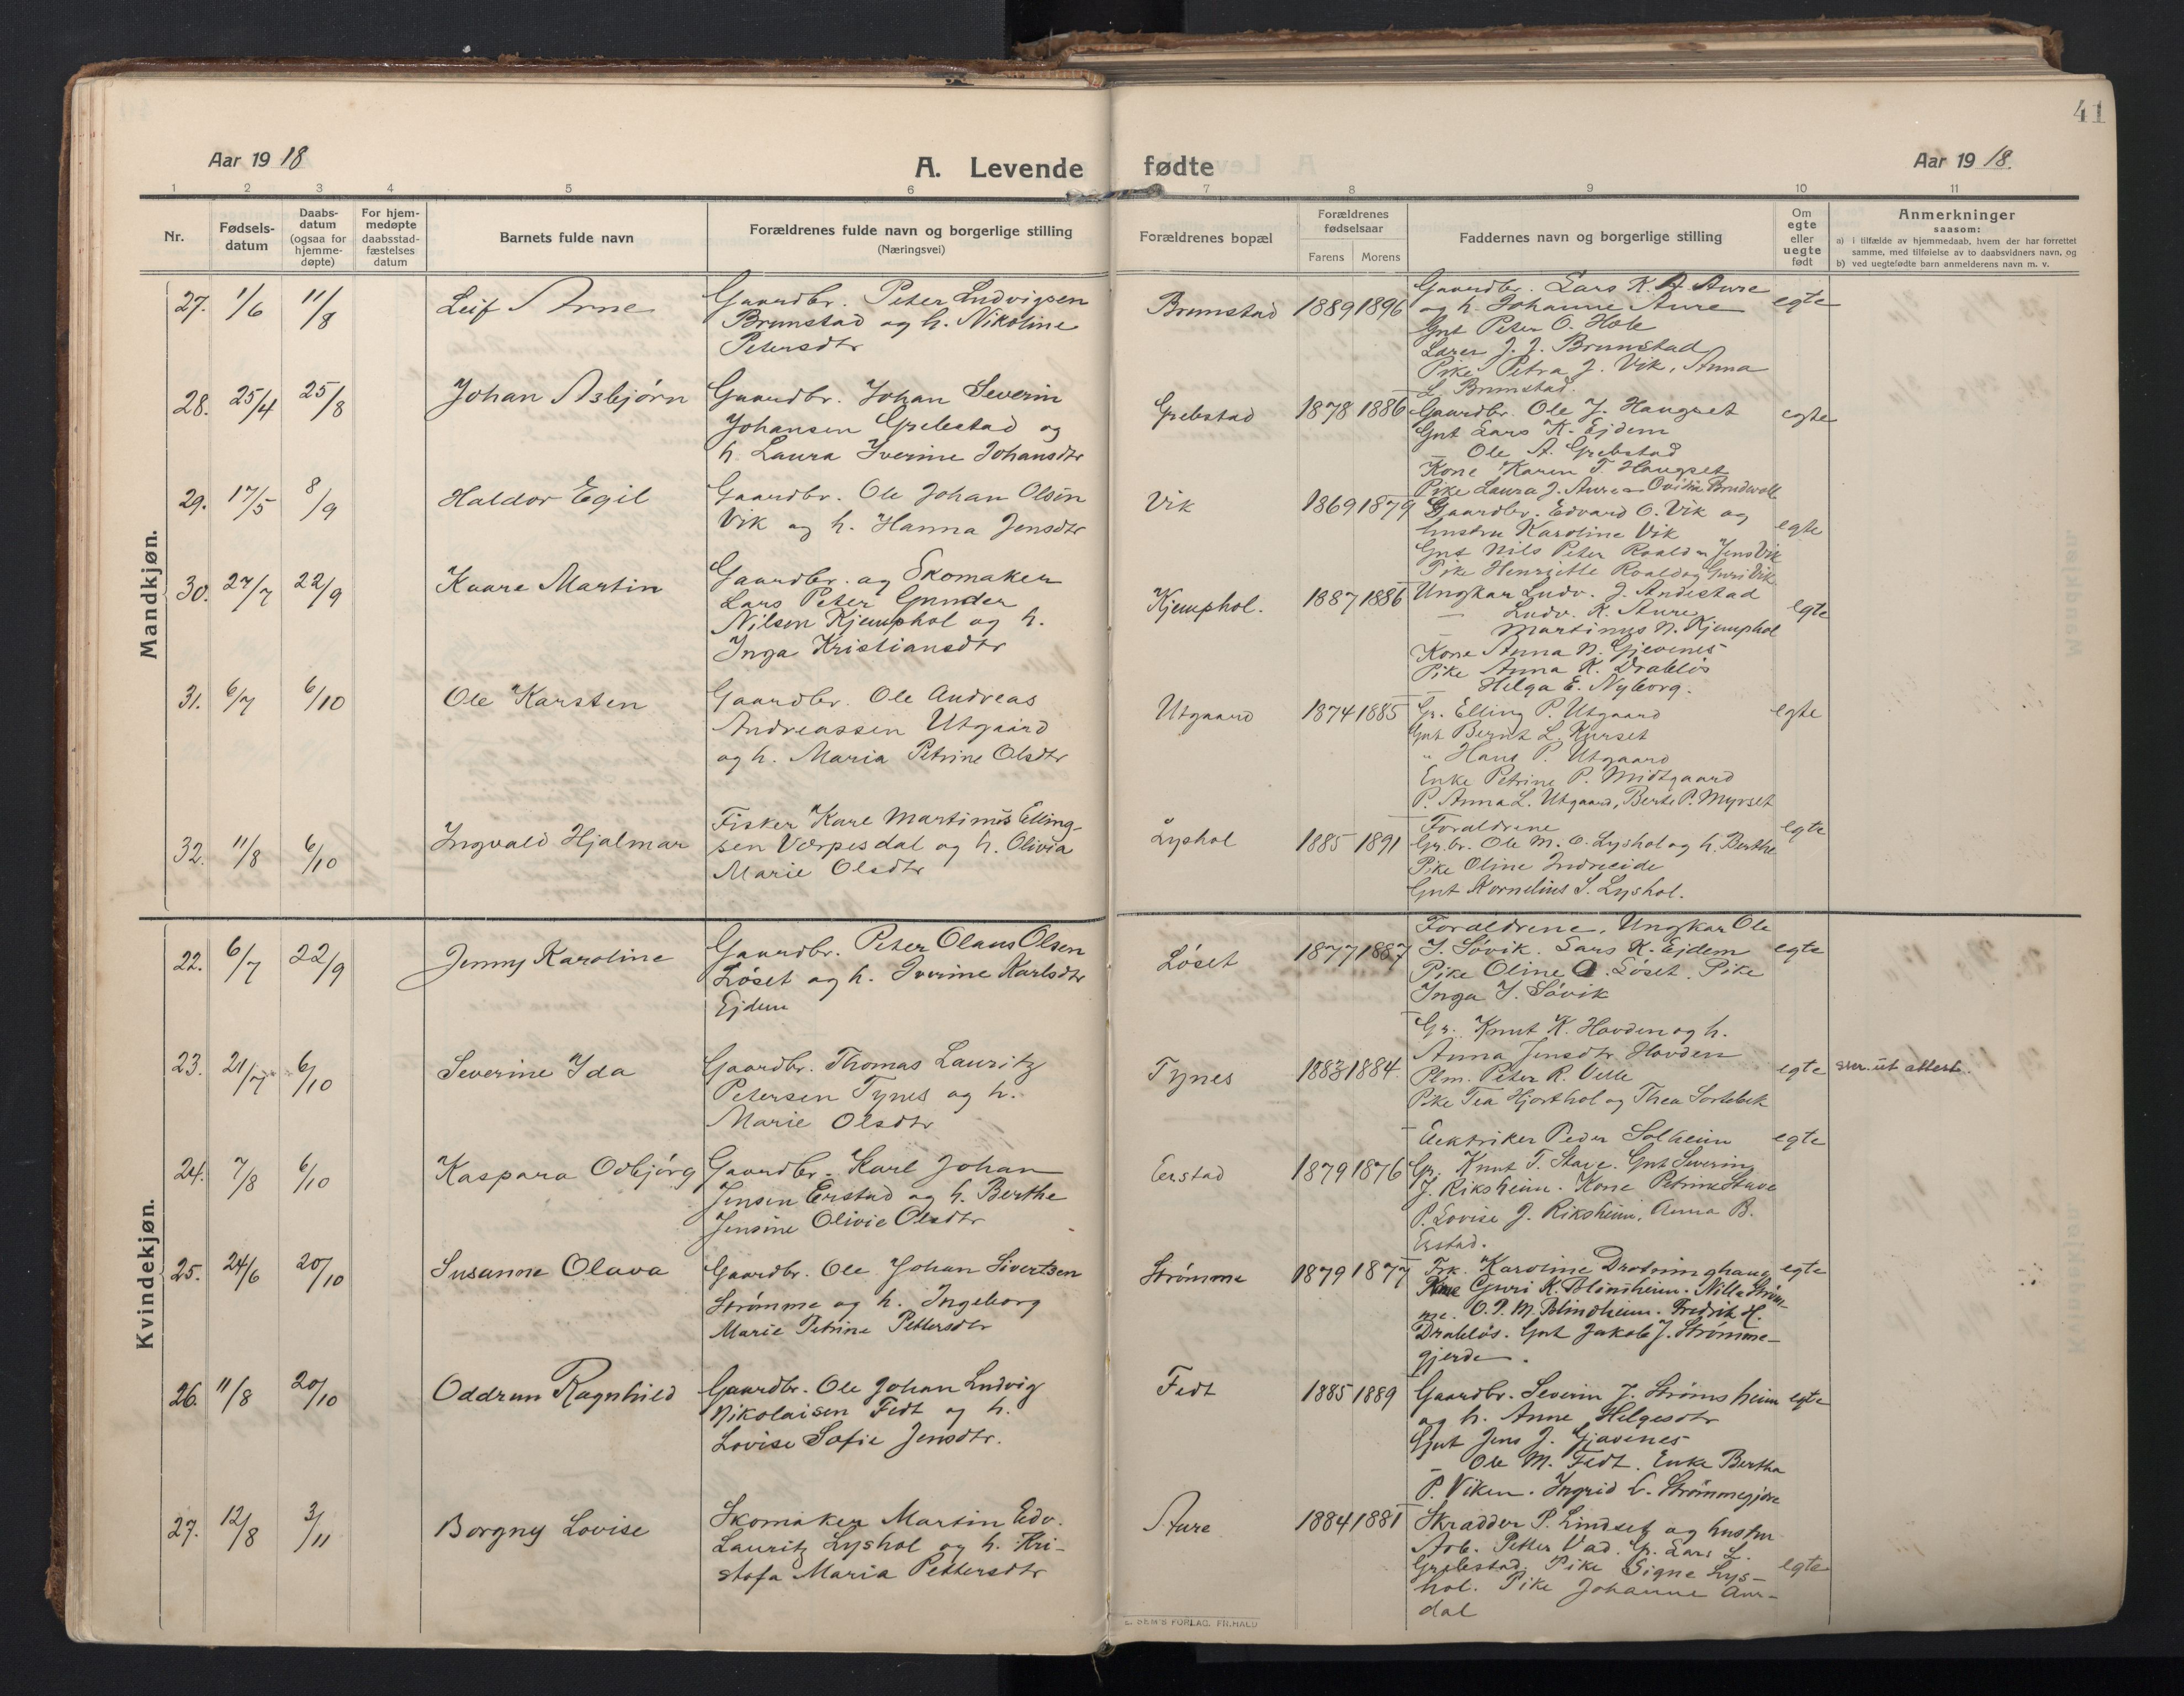 41
Aar 1918
A. Levende fødte
Aar 1918.
1 2 3 4 5 6 7 8 9 10 11
Nr.
Fødsels-
datum
Daabs-
datum
(ogsaa for
hjemme-
døpte)
For hjem-
medøpte
daabsstad-
fæstelses
datum
Barnets fulde navn
Forældrenes fulde navn og borgerlige stilling
(Næringsvei)
Forældrenes bopæl
Forældrenes
fødselsaar
Farens Morens
Faddernes navn og borgerlige stilling
Om
egte
eller
uegte
født
Anmerkninger
saasom:
a) i tilfælde av hjemmedaab, hvem der har forrettet
samme, med tilføielse av to daabsvidners navn, og
b) ved uegtefødte barn anmelderens navn m. v.
Mandkjøn.
27. 1/6 11/8 Leif Arne
Gaardbr. Peter Ludvigsen
Brunstad og h. Nikoline
Petersdtr
Brunstad 1889 1896
Gaardbr. Lars K. Aure
og h. Johanne Aure
Gut Peter O. Hole
Lærer J. J. Brunstad
Pike Petra J. Vik, Anna
L. Brunstad.
egte
28. 25/4 25/8 Johan Asbjörn
Gaardbr. Johan Severin
Johansen Grebstad og
h. Laura Iverine Johansdtr
Grebstad 1878 1886
Gaardbr. Ole J. Haugset
Gut Lars K. Ejdem
Ole A. Grebstad
Kone Karen T. Haugset
Pike Laura J. Aure
egte
29. 17/5 8/9 Haldor Egil
Gaardbr. Ole Johan Olsen
Vik og h. Hanna Jensdtr
Vik 1869 1879
Gaardbr. Edvard O. Vik og
hustru Karoline Vik
Gut Nils Peter Roald Jens Vik
Pike Henriette Roald og Guri Vik
egte
30. 27/7 22/9 Kaare Martin
Gaardbr. og Skomaker
Lars Peter Gunder
Nilsen Kjemphol og h.
Inga Kristiansdtr
Kjemphol. 1887 1886
Ungkar Ludv. J. Andestad
— Ludv. K. Aure
— Martinus N. Kjemphol
Kone Anna N. Gjevenes
Pike Anna K. Drabløs
— Helga E. Nyborg.
egte
31. 6/7 6/10 Ole Karsten
Gaardbr. Ole Andreas
Andreassen Utgaard
og h. Maria Petrine Olsdtr
Utgaard 1874 1885
Gr. Elling P. Utgaard
Gut Bernt L. Kurset
" Hans P. Utgaard
Enke Petrine P. Midtgaard
P. Anna L. Utgaard, Berte P. Myrset
egte
32. 11/8 6/10 Ingvald Hjalmar
Fisker Karl Martinus Elling-
sen Værpesdal og h. Olivia
Marie Olsdtr
Lyshol 1885 1891
Foraldrene
Gr.br. Ole M. O. Lyshol og h. Berthe
Pike Oline Indreeide
Gut Kornelius S. Lyshol.
egte
Kvindekjøn.
22. 6/7 22/9 Jenny Karoline
Gaardbr. Peter Olaus Olsen
Løset og h. Iverine Karlsdtr
Ejdem
Løset 1877 1887
Foraldrene, Ungkar Ole
J. Søvik. Lars K. Ejdem
Pike Oline O. Løset. Pike
Inga J. Søvik
egte
23. 21/7 6/10 Severine Ida
Gaardbr. Thomas Lauritz
Petersen Tynes og h.
Marie Olsdtr
Tynes 1883 1884
Gr. Knut K. Hovden og h.
Anna Jensdtr Hovden
Plm. Peter R. Velle
Pike Tea Hjorthol og Thea Sortebek
egte
ut attest.
24. 7/8 6/10 Kaspara Odbjörg
Gaardbr. Karl Johan
Jensen Erstad og h. Berthe
Jensine Olivie Olsdtr
Erstad 1879 1876
Elektriker Peder Solheim
Gr. Knut T. Stave. Gut Severin
J. Riksheim. Kone Petrine Stave
P. Lovise J. Riksheim, Anna B.
Erstad.
egte
25. 24/6 20/10 Susanne Olava
Gaardbr. Ole Johan Sivertsen
Strømme og h. Ingeborg
Marie Petrine Pettersdtr
Strømme 1879 1877
Frk. Karoline Drotninghaug
Kone Guri K. Blindheim. Nilla Strøm-
me. O. P. M. Blindheim. Fredrik H.
Drabløs. Gut Jakob J. Strømme-
gjerde.
egte
26. 11/8 20/10 Oddrun Ragnhild
Gaardbr. Ole Johan Ludvig
Nikolaisen Fedt og h.
Lovise Sofie Jensdtr.
Fedt 1885 1889
Gaardbr. Severin J. Strømsheim
og h. Anne Helgesdtr
Gut Jens J. Gjævenes
— Ole M. Fedt. Enke Bertha
P. Viken. Ingrid L. Strømmegjære
egte
27. 12/8 3/11 Borgny Lovise
Skomaker Martin Edv.
Lauritz Lyshol og h. Kri-
stofa Maria Pettersdtr
Aure 1884 1881
Skradder P. Lindset og hustru
Arb. Petter Vad. Gr. Lars L.
Grebstad. Pike Signe Lys-
hol. Pike Johanne Aur-
dal
egte
E. SEM'S FORLAG. FR.HALD